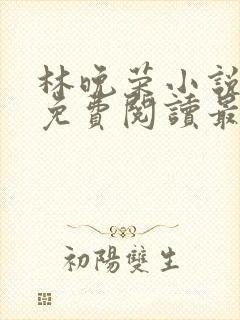 林晚荣小說
免費閱讀最
初陽雙生